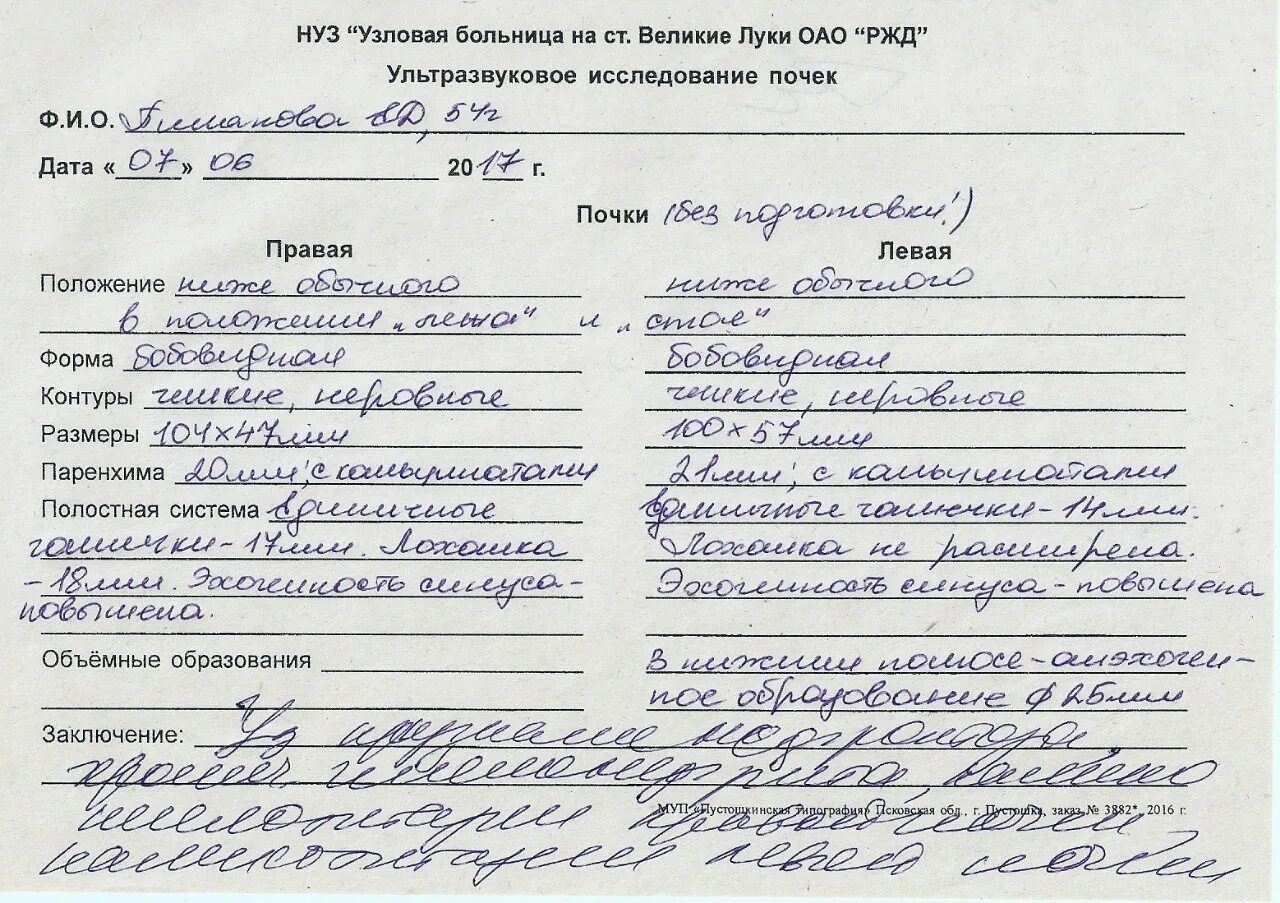 НУЗ “Узловая больница на ст. Великие Луки ОАО “РЖД”
Ультразвуковое исследование почек
Ф.И.О. ВД, 54г
Дата « 07 » 06 2017 г.
Почки (без подготовки!)
Правая Левая
Положение ниже обычного ниже обычного
в положении „лежа“ и „стоя“
Форма бобовидная бобовидная
Контуры четкие, неровные четкие, неровные
Размеры 104×47мм 100×57мм
Паренхима 20мм; с кальцинатами 21мм; с кальцинатами
Полостная система единичные единичные чашечки-14мм.
чашечки-17мм. Лоханка Лоханка не расширена.
-18мм. Эхогенность синуса- Эхогенность синуса-повышена
повышена.
Объёмные образования В нижнем полюсе-анэхоген-
ное образование ф 25мм
Заключение: Уз признаки нефроптоза,
хронич. пиелонефрита,
МУП «Пустошкинская типография» Псковская обл., г. Пустошка, заказ № 3882*, 2016 г.
пиелоэктазии правой почки
каликоэктазии левой почки